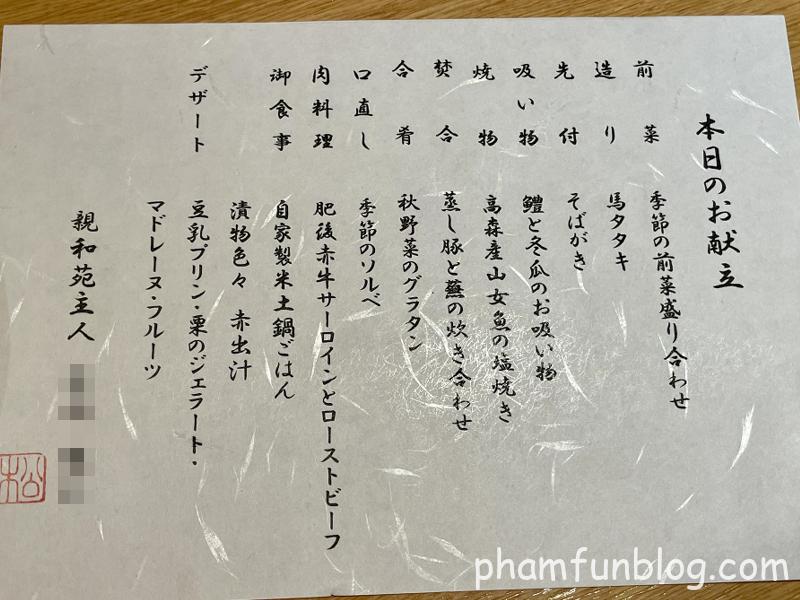 本日のお献立
前菜 季節の前菜盛り合わせ
造り 馬タタキ
先付 そばがき
吸い物 鱧と冬瓜のお吸い物
焼物 高森産山女魚の塩焼き
焚合 蒸し豚と蕪の炊き合わせ
合肴 秋野菜のグラタン
口直し 季節のソルベ
肉料理 肥後赤牛サーロインとローストビーフ
御食事 自家製米土鍋ごはん
漬物色々 赤出汁
デザート 豆乳プリン・栗のジェラート・
マドレーヌ・フルーツ
親和苑主人
松
phamfunblog.com